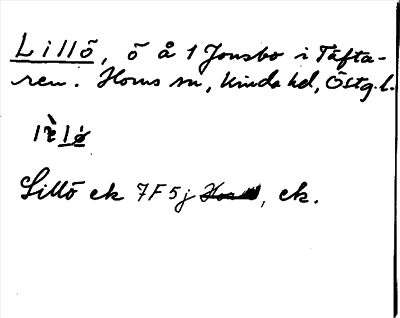 Lillö, ö å 1 Jonsbo i Täfta-
ren. Horns sn, Kinda hd, Östg. l.
Lillö ek 7F5j, ek.